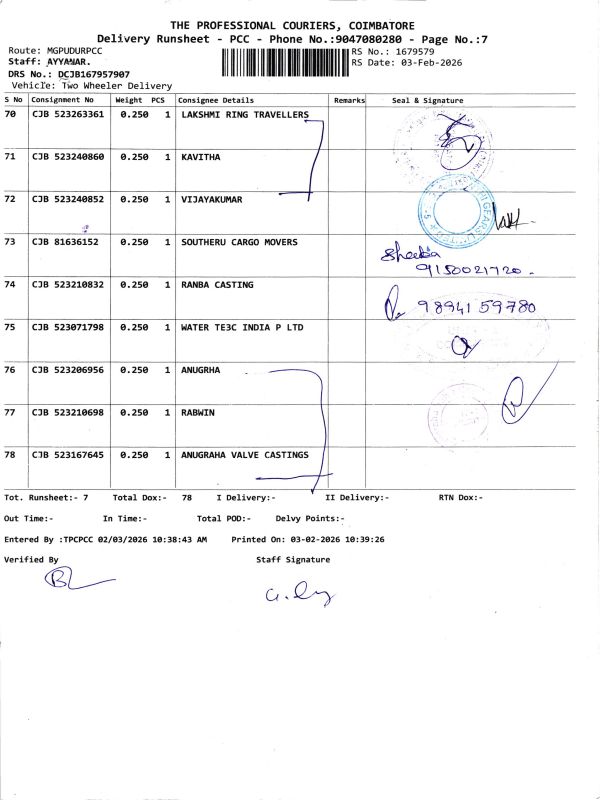 THE PROFESSIONAL COURIERS, COIMBATORE
Delivery Runsheet - PCC - Phone No.:9047080280 - Page No.:7
Route: MGPUDURPCC RS No.: 1679579
Staff: AYYANAR. RS Date: 03-Feb-2026
DRS No.: DCJB167957907
Vehicle: Two Wheeler Delivery
S No Consignment No Weight PCS Consignee Details Remarks Seal & Signature
70 CJB 523263361 0.250 1 LAKSHMI RING TRAVELLERS
71 CJB 523240860 0.250 1 KAVITHA
72 CJB 523240852 0.250 1 VIJAYAKUMAR
73 CJB 81636152 0.250 1 SOUTHERU CARGO MOVERS Sheeba
9150021720.
74 CJB 523210832 0.250 1 RANBA CASTING 98941 59780
75 CJB 523071798 0.250 1 WATER TE3C INDIA P LTD
76 CJB 523206956 0.250 1 ANUGRHA
77 CJB 523210698 0.250 1 RABWIN
78 CJB 523167645 0.250 1 ANUGRAHA VALVE CASTINGS
Tot. Runsheet:- 7 Total Dox:- 78 I Delivery:- II Delivery:- RTN Dox:-
Out Time:- In Time:- Total POD:- Delvy Points:-
Entered By :TPCPCC 02/03/2026 10:38:43 AM Printed On: 03-02-2026 10:39:26
Verified By Staff Signature